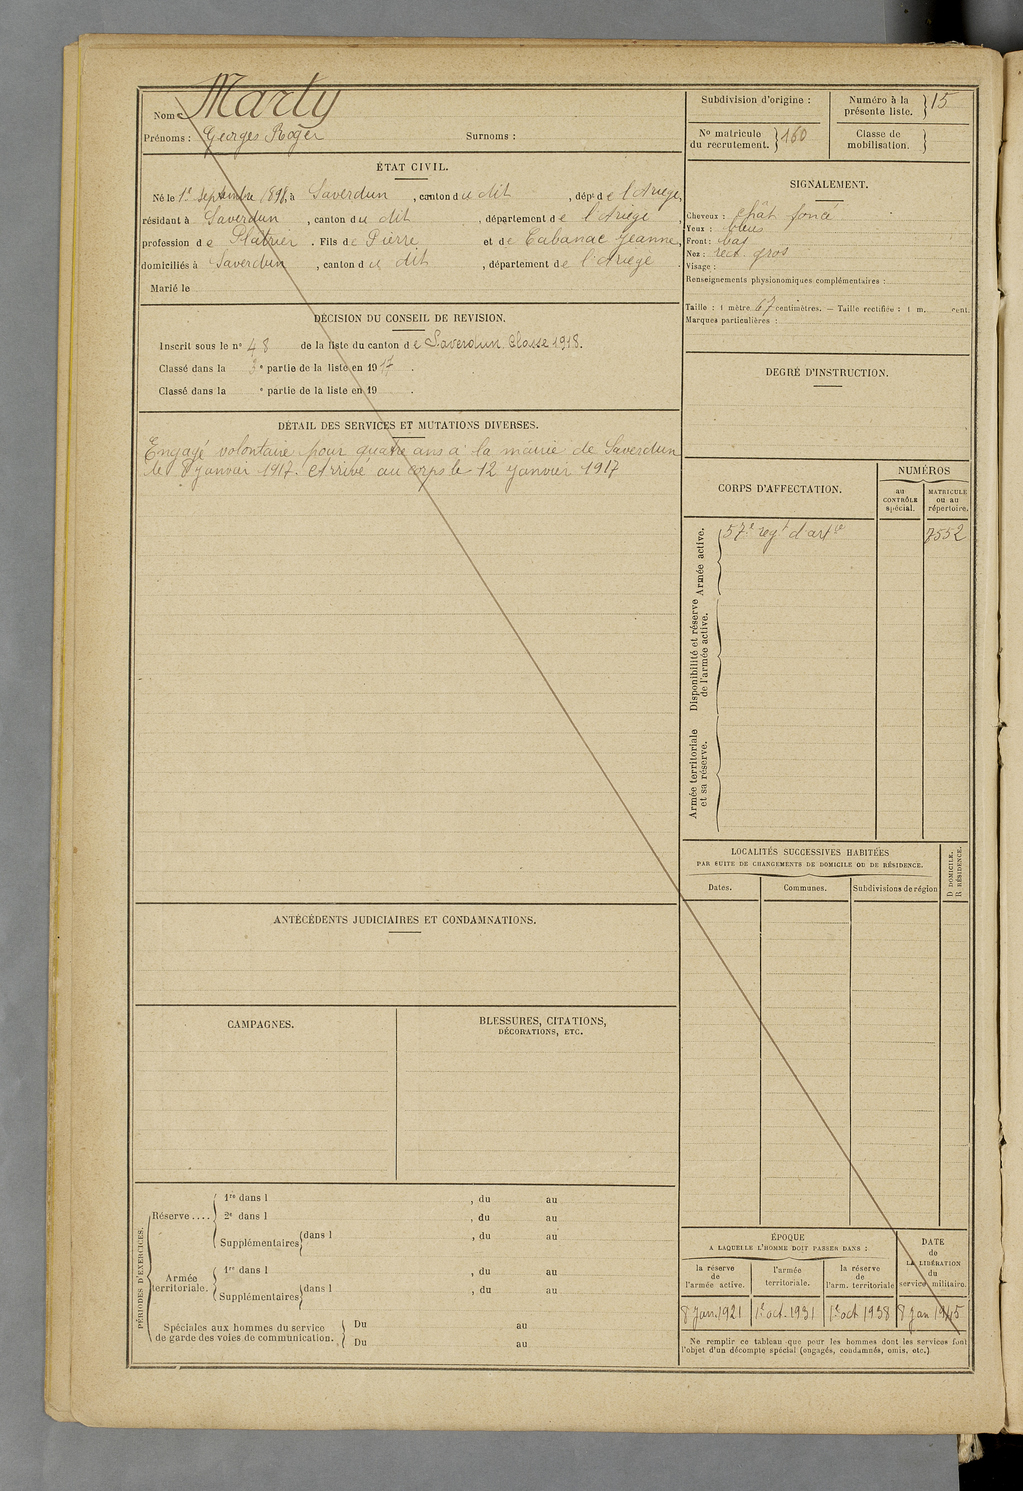 Nom : Marty
Prénoms : Georges Roger Surnoms :
ÉTAT CIVIL.
Né le 1er Septembre 1898, à Saverdun, canton du dit, dépt de l'Ariège,
résidant à Saverdun, canton du dit, département de l'Ariège,
profession de Plâtrier. Fils de Pierre et de Cabanac Jeanne,
domiciliés à Saverdun, canton du dit, département de l'Ariège.
Marié le
DÉCISION DU CONSEIL DE REVISION.
Inscrit sous le n° 48 de la liste du canton de Saverdun Classe 1918.
Classé dans la 3e partie de la liste en 1917.
Classé dans la e partie de la liste en 19 .
DÉTAIL DES SERVICES ET MUTATIONS DIVERSES.
Engagé volontaire pour quatre ans à la mairie de Saverdun
le 8 janvier 1917. et arrivé au corps le 12 janvier 1917
ANTÉCÉDENTS JUDICIAIRES ET CONDAMNATIONS.
CAMPAGNES.
BLESSURES, CITATIONS,
DÉCORATIONS, ETC.
PÉRIODES D'EXERCICES.
Réserve....
1re dans l , du au
2e dans l , du au
Supplémentaires dans l , du au
Armée
territoriale.
1re dans l , du au
Supplémentaires dans l , du au
Spéciales aux hommes du service
de garde des voies de communication.
Du au
Du au
Subdivision d'origine :
Numéro à la
présente liste. 15
N° matricule
du recrutement. 160
Classe de
mobilisation.
SIGNALEMENT.
Cheveux : chât foncé
Yeux : bleus
Front : bas
Nez : rect. gros
Visage :
Renseignements physionomiques complémentaires :
Taille : 1 mètre 67 centimètres. — Taille rectifiée : 1 m. cent.
Marques particulières :
DEGRÉ D'INSTRUCTION.
CORPS D'AFFECTATION.
NUMÉROS
au
CONTRÔLE
spécial.
MATRICULE
ou au
répertoire.
Armée active.
57e regt d'artie 7552
Disponibilité et réserve
de l'armée active.
Armée territoriale
et sa réserve.
LOCALITÉS SUCCESSIVES HABITÉES
PAR SUITE DE CHANGEMENTS DE DOMICILE OU DE RÉSIDENCE.
D DOMICILE.
R RÉSIDENCE.
Dates. Communes. Subdivisions de région
ÉPOQUE
A LAQUELLE L'HOMME DOIT PASSER DANS :
la réserve
de
l'armée active.
l'armée
territoriale.
la réserve
de
l'arm. territoriale
DATE
de
LA LIBÉRATION
du
service militaire.
8 Jan. 1921 1er oct. 1931 1er oct 1938 8 Jan 1945
Ne remplir ce tableau que pour les hommes dont les services font
l'objet d'un décompte spécial (engagés, condamnés, omis, etc.)